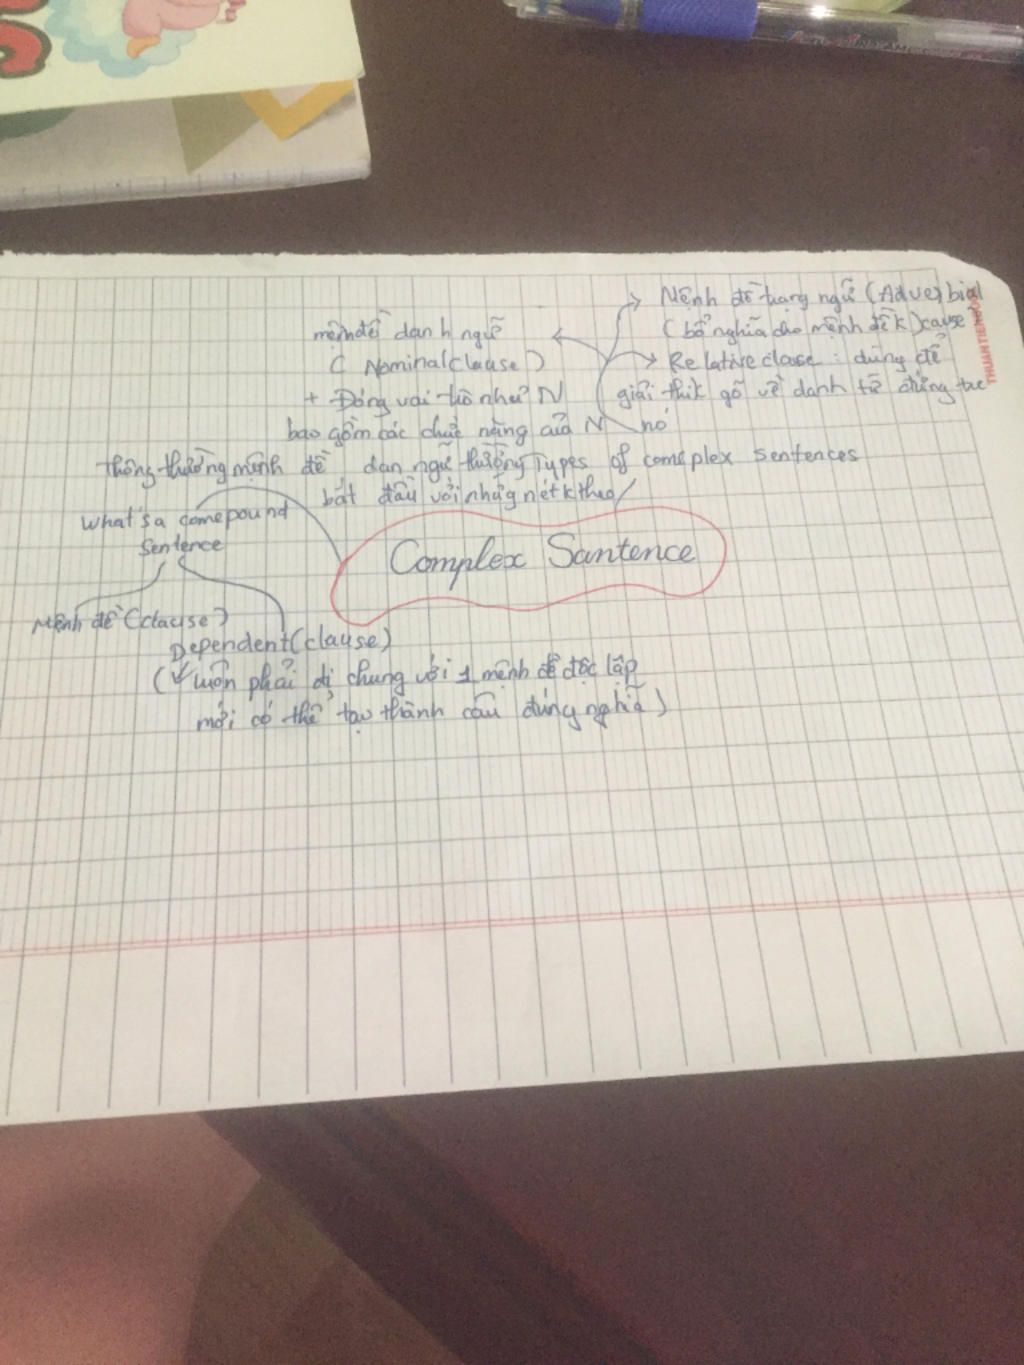 Mệnh đề trạng ngữ (Adverbial
(bổ nghĩa cho mệnh đề k) cause
Relative clause : dùng để
giải thik gõ về danh từ đứng trc
nó
mệnh đề danh ngữ
( Nominal(clause)
+ Đóng vai trò như N
bao gồm các chức năng của N
thông thường mệnh đề dan ngữ thường
bắt đầu với những nét k theo
Types of comeplex sentences
What's a comepound
Sentence
Complex Santence
Mệnh đề (clause)
Dependent(clause)
( luôn phải đi chung với 1 mệnh đề độc lập
mới có thể tạo thành câu đúng nghĩa )
THUANTIEN